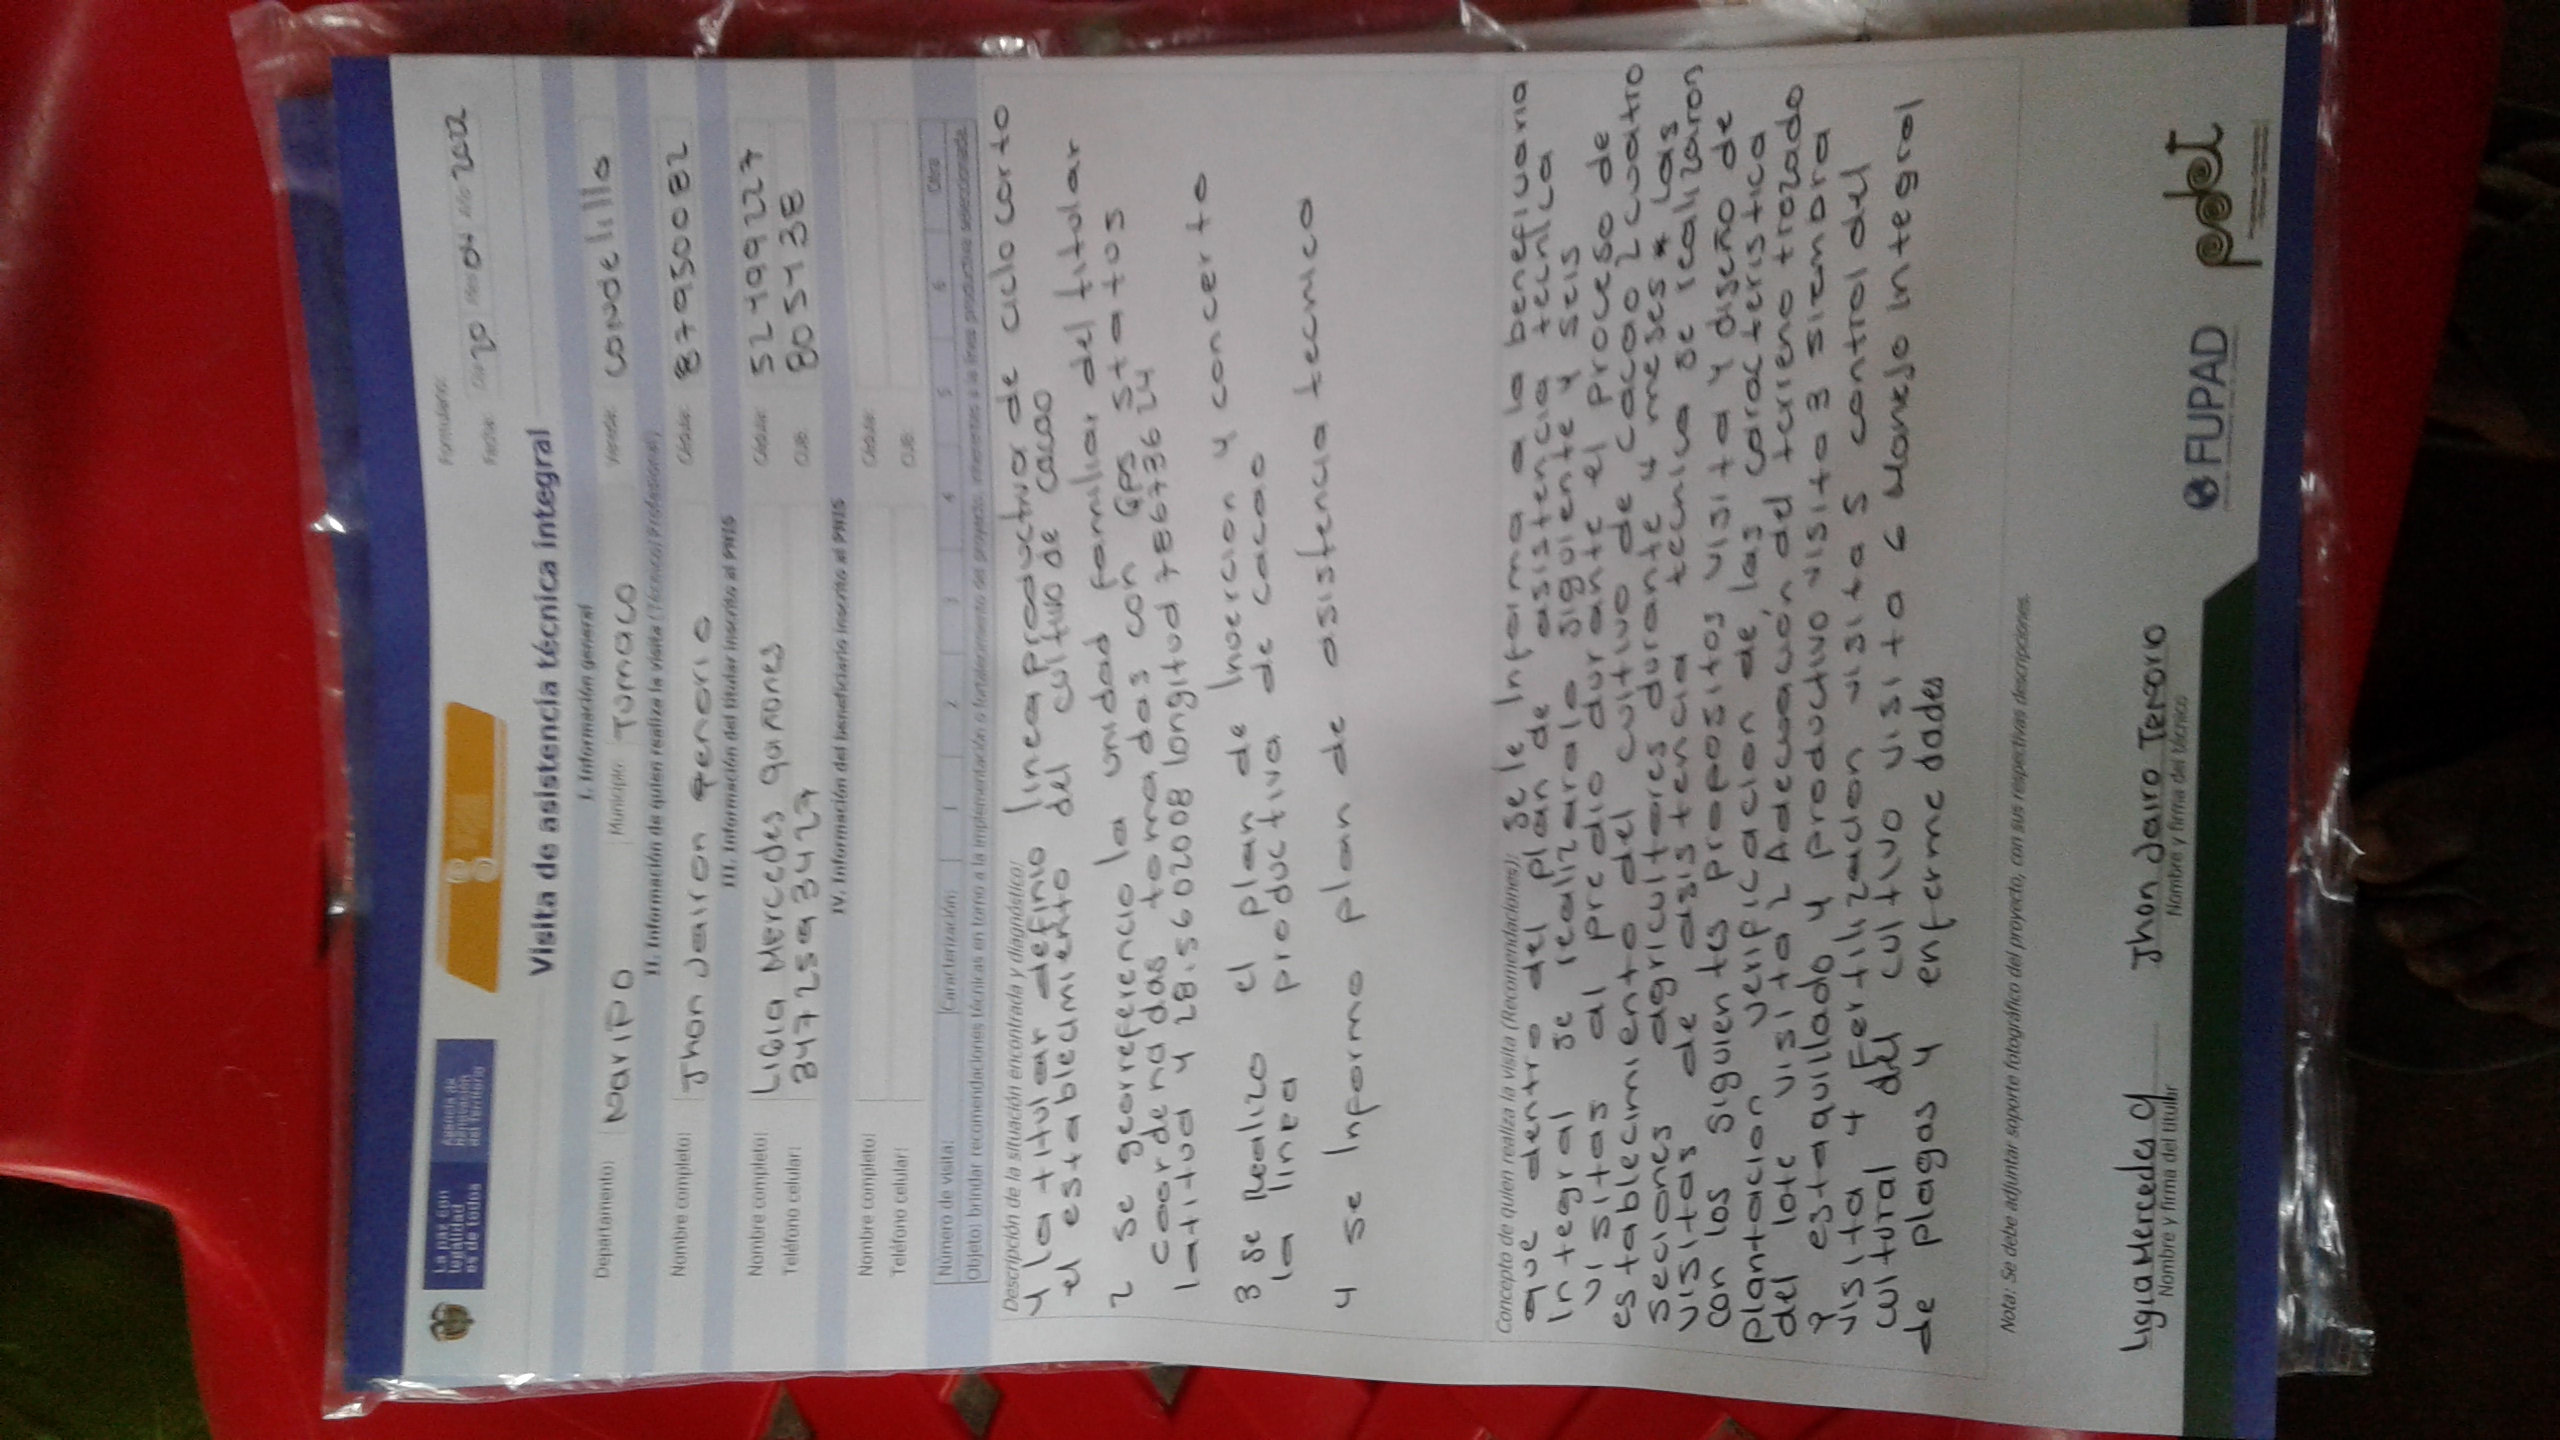 La paz con
legalidad
es de todos
Agencia de
Renovación
del Territorio
Formulario:
Fecha: Día 20 Mes 04 Año 2022
Visita de asistencia técnica integral
I. Información general
Departamento: NariÑO Municipio: Tumaco Vereda: CONdelillo
II. Información de quien realiza la visita (Técnico/Profesional)
Nombre completo: Jhon Jairon tenorio Cédula: 87950082
III. Información del titular inscrito al PNIS
Nombre completo: LIGIa Mercedes quiñones Cédula: 52499227
Teléfono celular: 3472593427 CUB: 805438
IV. Información del beneficiario inscrito al PNIS
Nombre completo: Cédula:
Teléfono celular: CUB:
Número de visita: Caracterización 1 2 3 4 5 6 Otra
Objeto: brindar recomendaciones técnicas en torno a la implementación o fortalecimiento del proyecto, inherentes a la línea productiva seleccionada.
Descripción de la situación encontrada y diagnóstico:
1 la titular definio linea productiva de ciclo corto
el establecimiento del cultivo de cacao
2 se georreferencio la unidad familiar del titular
coordenadas tomadas con GPS Status
latitud 1 28.5602008 longitud 78673624
3 se Realizo el plan de Invercion y concerto
la linea productiva de cacao
4 se Informo plan de asistencia tecnico
Concepto de quien realiza la visita (Recomendaciones): se le Informa a la beneficiaria
que dentro del plan de asistencia tecnica
Integral se realizaralo siguiente y seis
visitas al predio durante el proceso de
establecimiento del cultivo de cacao 2 cuatro
seciones agricultores durante 4 meses * las
visitas de asistencia tecnica se realizaron
con los siguientes propositos visita 1 diseño de
plantacion verificacion de las caracteristica
del lote visita 2 Adecuación del terreno trozado
Y estaquillado y productivo visita 3 siembra
visita 4 Fertilizacion visita 5 control del
cultural del cultivo visita 6 Manejo Integral
de plagas y enfermedades
Nota: Se debe adjuntar soporte fotográfico del proyecto, con sus respectivas descripciones.
Ligia Mercedes q Jhon Jairo Tenorio
Nombre y firma del titular Nombre y firma del técnico
FUPAD pdet